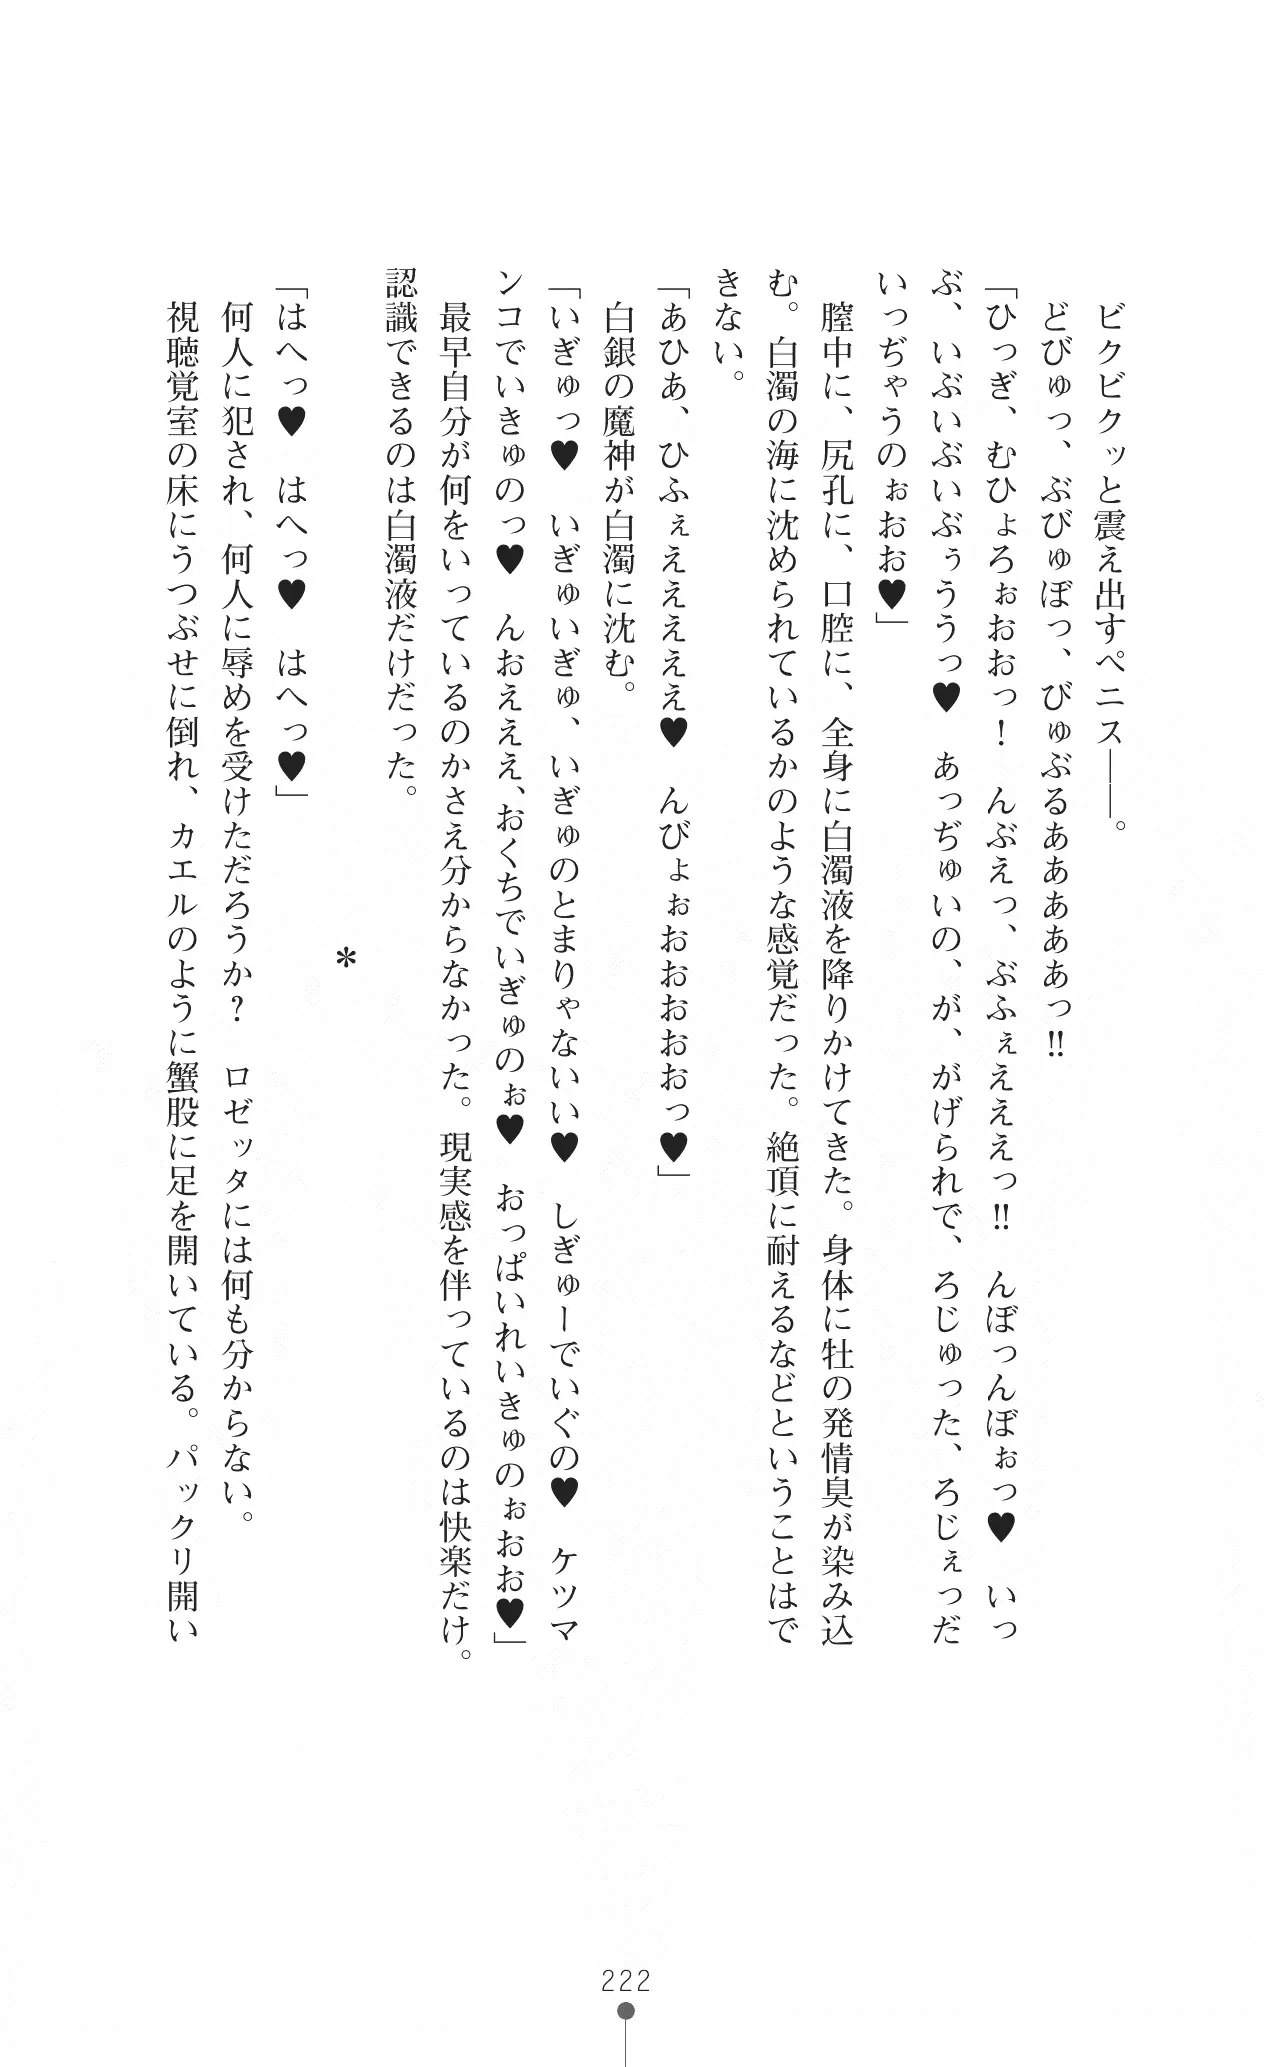 ビクビクッと震え出すペニス――。
どびゅっ、ぶびゅぼっ、びゅぶるあああああっ!!
「ひっぎ、むひょろぉおおっ！　んぶえっ、ぶふぇえええっ!!　んぼっんぼぉっ♥　いっ
ぶ、いぶいぶいぶぅううっ♥　あっぢゅいの、が、がげられで、ろじゅった、ろじぇっだ
いっぢゃうのぉおお♥」
膣中に、尻孔に、口腔に、全身に白濁液を降りかけてきた。身体に牡の発情臭が染み込
む。白濁の海に沈められているかのような感覚だった。絶頂に耐えるなどということはで
きない。
「あひあ、ひふぇええええ♥　んびょぉおおおおおっ♥」
白銀の魔神が白濁に沈む。
「いぎゅっ♥　いぎゅいぎゅ、いぎゅのとまりゃないい♥　しぎゅーでいぐの♥　ケツマ
ンコでいきゅのっ♥　んおえええ、おくちでいぎゅのぉ♥　おっぱいれいきゅのぉおお♥」
最早自分が何をいっているのかさえ分からなかった。現実感を伴っているのは快楽だけ。
認識できるのは白濁液だけだった。
＊
「はへっ♥　はへっ♥　はへっ♥」
何人に犯され、何人に辱めを受けただろうか？　ロゼッタには何も分からない。
視聴覚室の床にうつぶせに倒れ、カエルのように蟹股に足を開いている。パックリ開い
222